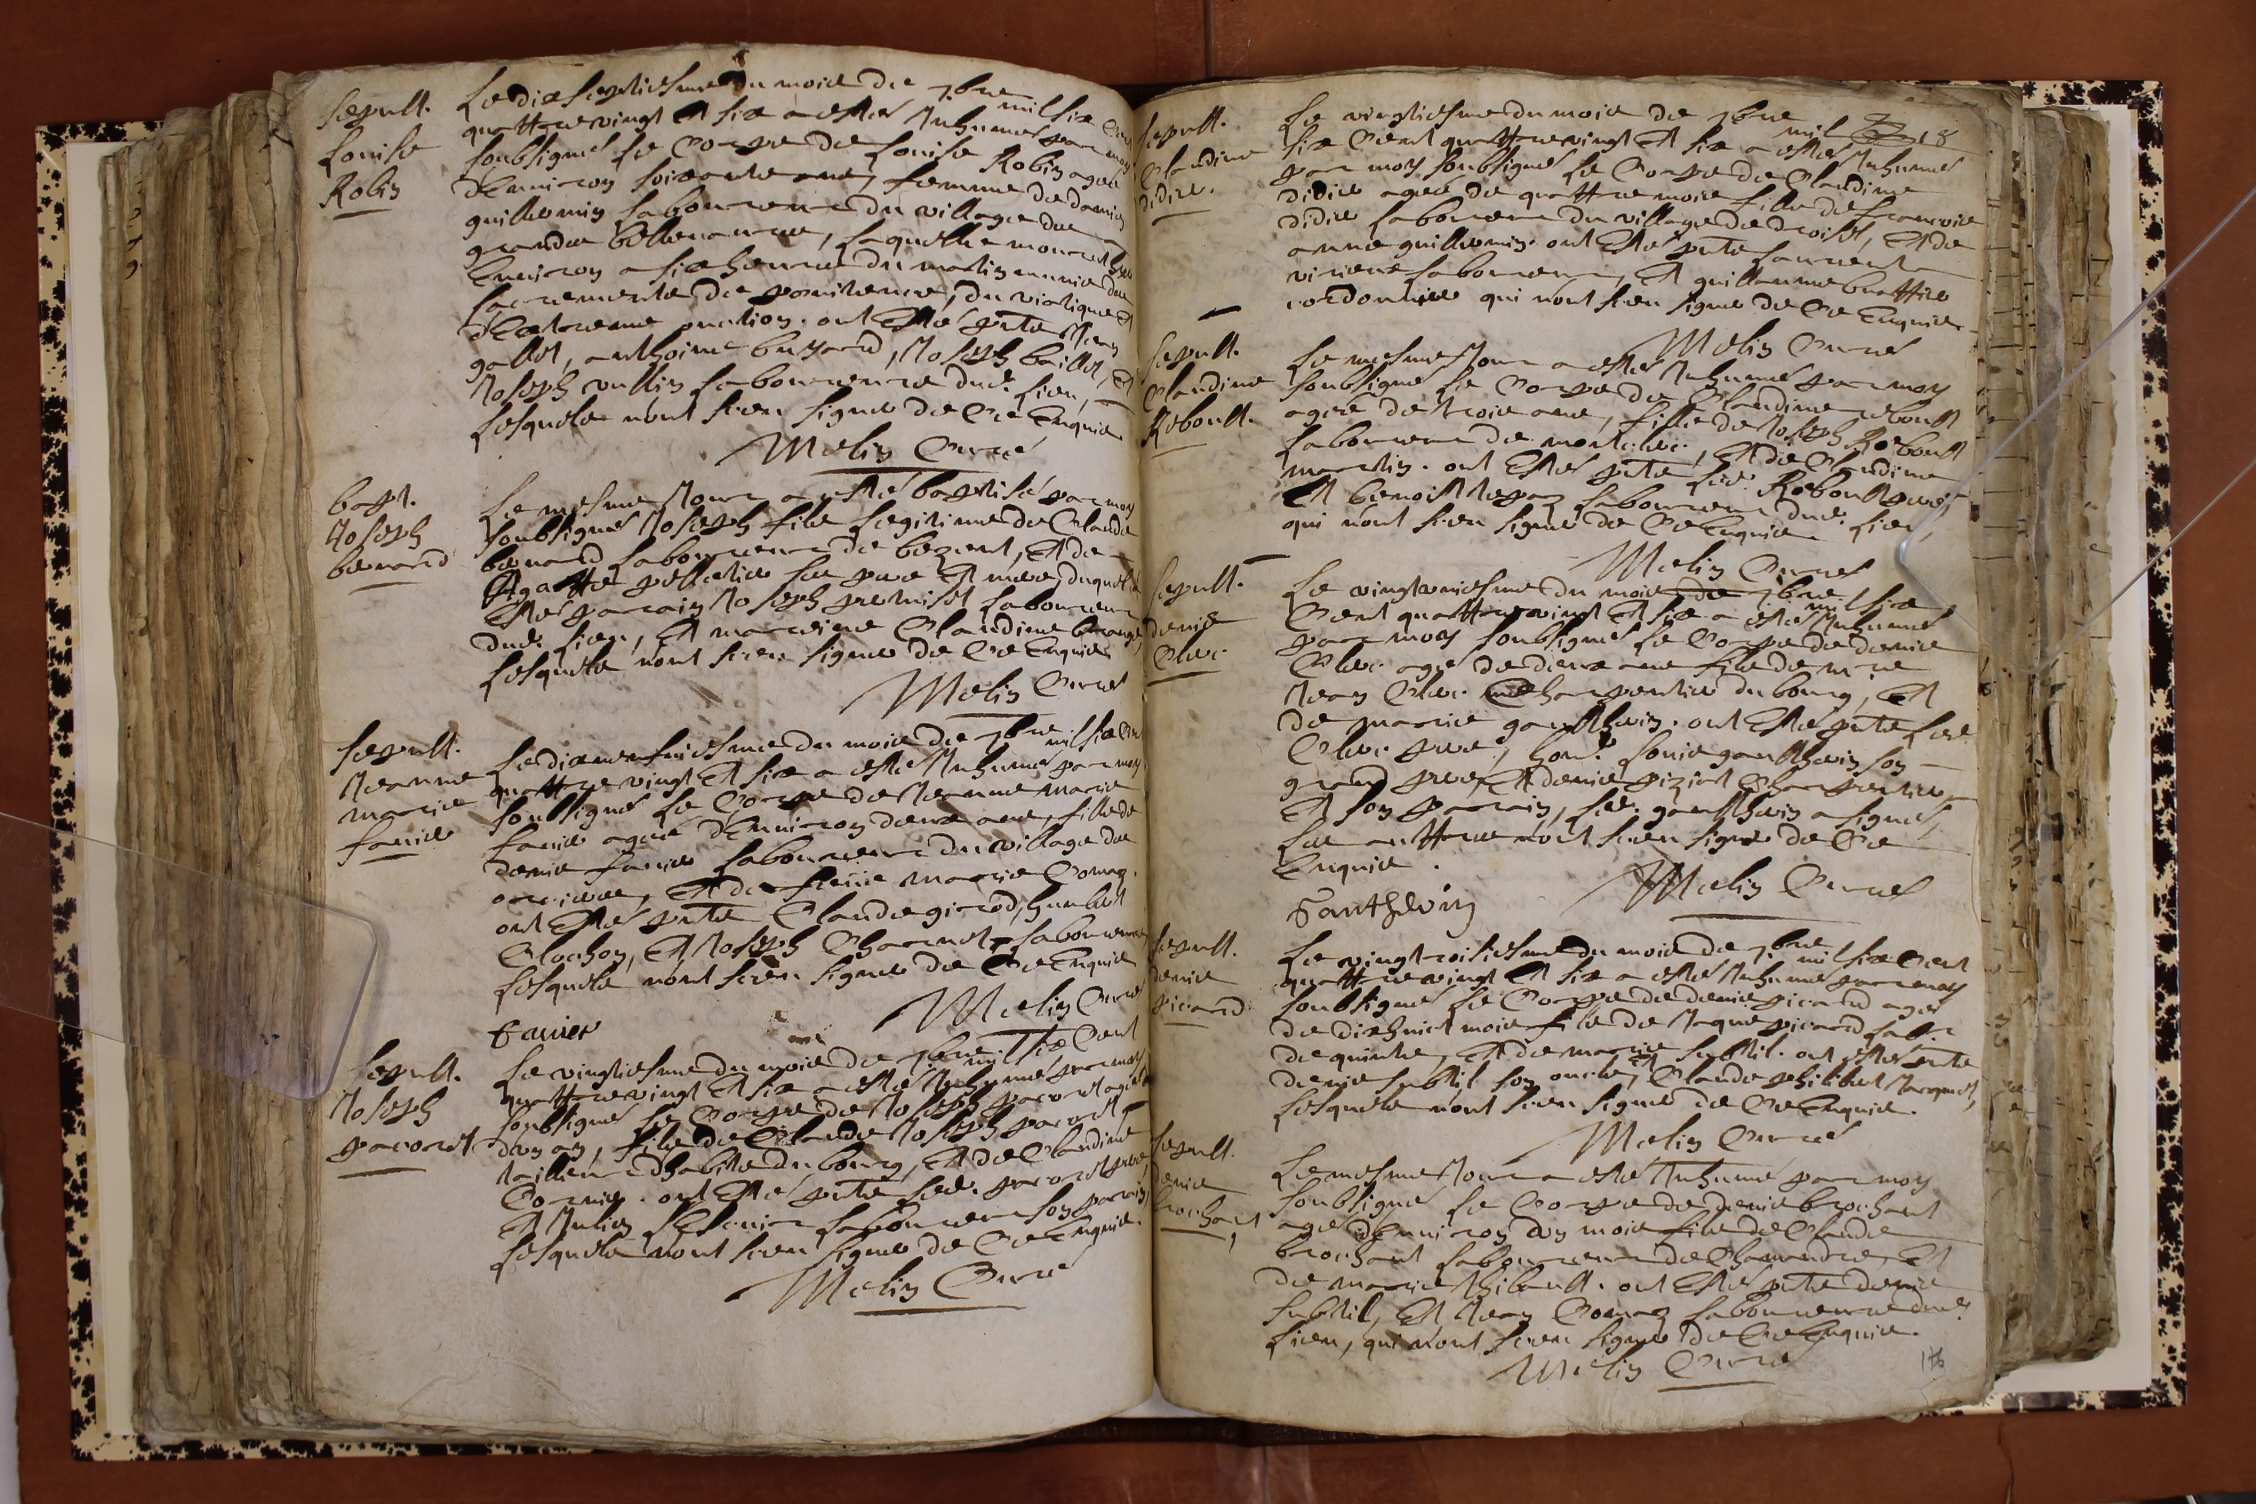 sepult.
Louise
Robin
Le dix septiesme du mois de 7bre mil six cent
quattre vingt et six a esté Inhumé par moy
soubsigné le Corps de Louise Robin agée
d'Environ soixante ans, femme de damien
guillemin laboureur du village des
grandes bellenaives, laquelle mourut hier
Environ a six heures du matin munie des
sacrements de penitence, du viatique et
d'Extreme onction. ont esté pnts Jean
gallet, anthoine buzard, Joseph baillet, et
Joseph vullin laboureurs dud. lieu,
lesquels n'ont sceu signer de ce Enquis
Melin Curé
bapt.
Joseph
benard
Le mesme Jour a esté baptisé par moy
soubsigné Joseph fils legitime de Claude
benard laboureur de bezent, et de
Agatte pelletier ses pere et mere, duquel a
esté parrain Joseph premiset laboureur
dud. lieu, et mareine Claudine
lesquels n'ont sceu signer de ce Enquis
Melin Curé
sepult.
Jeanne
marie
favier
Le dixneufuiesme du mois de 7bre mil six cent
quattre vingt et six a esté Inhumé par moy
soubsigné le Corps de Jeanne marie
favier agée d'Environ deux ans, fille de
denis favier laboureur du village de
et de feüe marie Comaz.
ont esté pnts Claude girod, humbert
Clochon, et Joseph Charnet, laboureurs
lesquels n'ont sceu signer de ce Enquis
Melin Curé
favier
sepult.
Joseph
pacoret
Le vingtiesme du mois de 7bre mil six cent
quattre vingt et six a esté Inhumé par moy
soubsigné le Corps de Joseph pacoret agé
d'un an, fils de Claude Joseph pacoret
tailleur d'habits du bourg, et de Claudine
Cornier. ont esté pnts led. pacoret pere,
et Julien laboureur son parrain
lesquels n'ont sceu signer de ce Enquis.
Melin Curé
sepult.
Claudine
didier.
Le vingtiesme du mois de 7bre mil
six cent quattre vingt et six a esté Inhumé
par moy soubsigné le Corps de Claudine
didier agée de quattre mois fille de francois
didier laboureur du village de droiset, et de
anne guillemin. ont esté pnts laurent
viriene laboureur, et guillaume buattier
cordonnier qui n'ont sceu signer de ce Enquis
Melin Curé
sepult.
Claudine
Reboult.
Le mesme Jour a esté Inhumé par moy
soubsigné le Corps de Claudine reboult
agée de trois ans, fille de Joseph Reboult
laboureur de et de Claudine
martin. ont esté pnts led. Reboult pere,
et benoist laboureur dud. lieu,
qui n'ont sceu signer de ce Enquis
Melin Curé
sepult.
denis
Clerc
Le vingtuniesme du mois de 7bre mil six
cent quattre vingt et six a esté Inhumé
par moy soubsigné le Corps de denis
Clerc agé de deux ans fils de mre
Jean Clerc me Charpentier du bourg, et
de marie gantthein. ont esté pnts led.
Clerc pere, hon. Louis gantthein son
grand pere, et denis piziat Charpentier
et son parrain, led. gantthein a signé,
les auttres n'ont sceu signer de ce
Enquis.
Melin Curé
Gantthein
sepult.
denis
picard
Le vingttroisiesme du mois de 7bre mil six cent
quattre vingt et six a esté Inhumé par moy
soubsigné le Corps de denis picard agé
de dixhuict mois fils de Jaque picard labr.
de quinte, et de marie subtil. ont esté pnts
denis subtil son oncle, et Claude philibert Jacquet,
lesquels n'ont sceu signer de ce Enquis.
Melin Curé
sepult.
denis
brochant
Le mesme Jour a esté Inhumé par moy
soubsigné le Corps de denis brochant
agé d'Environ un mois fils de Claude
brochant laboureur de Chamandre, et
de marie thibault. ont esté pnts denis
subtil, et Jean Comaz laboureurs dud.
lieu, qui n'ont sceu signer de ce Enquis.
Melin Curé